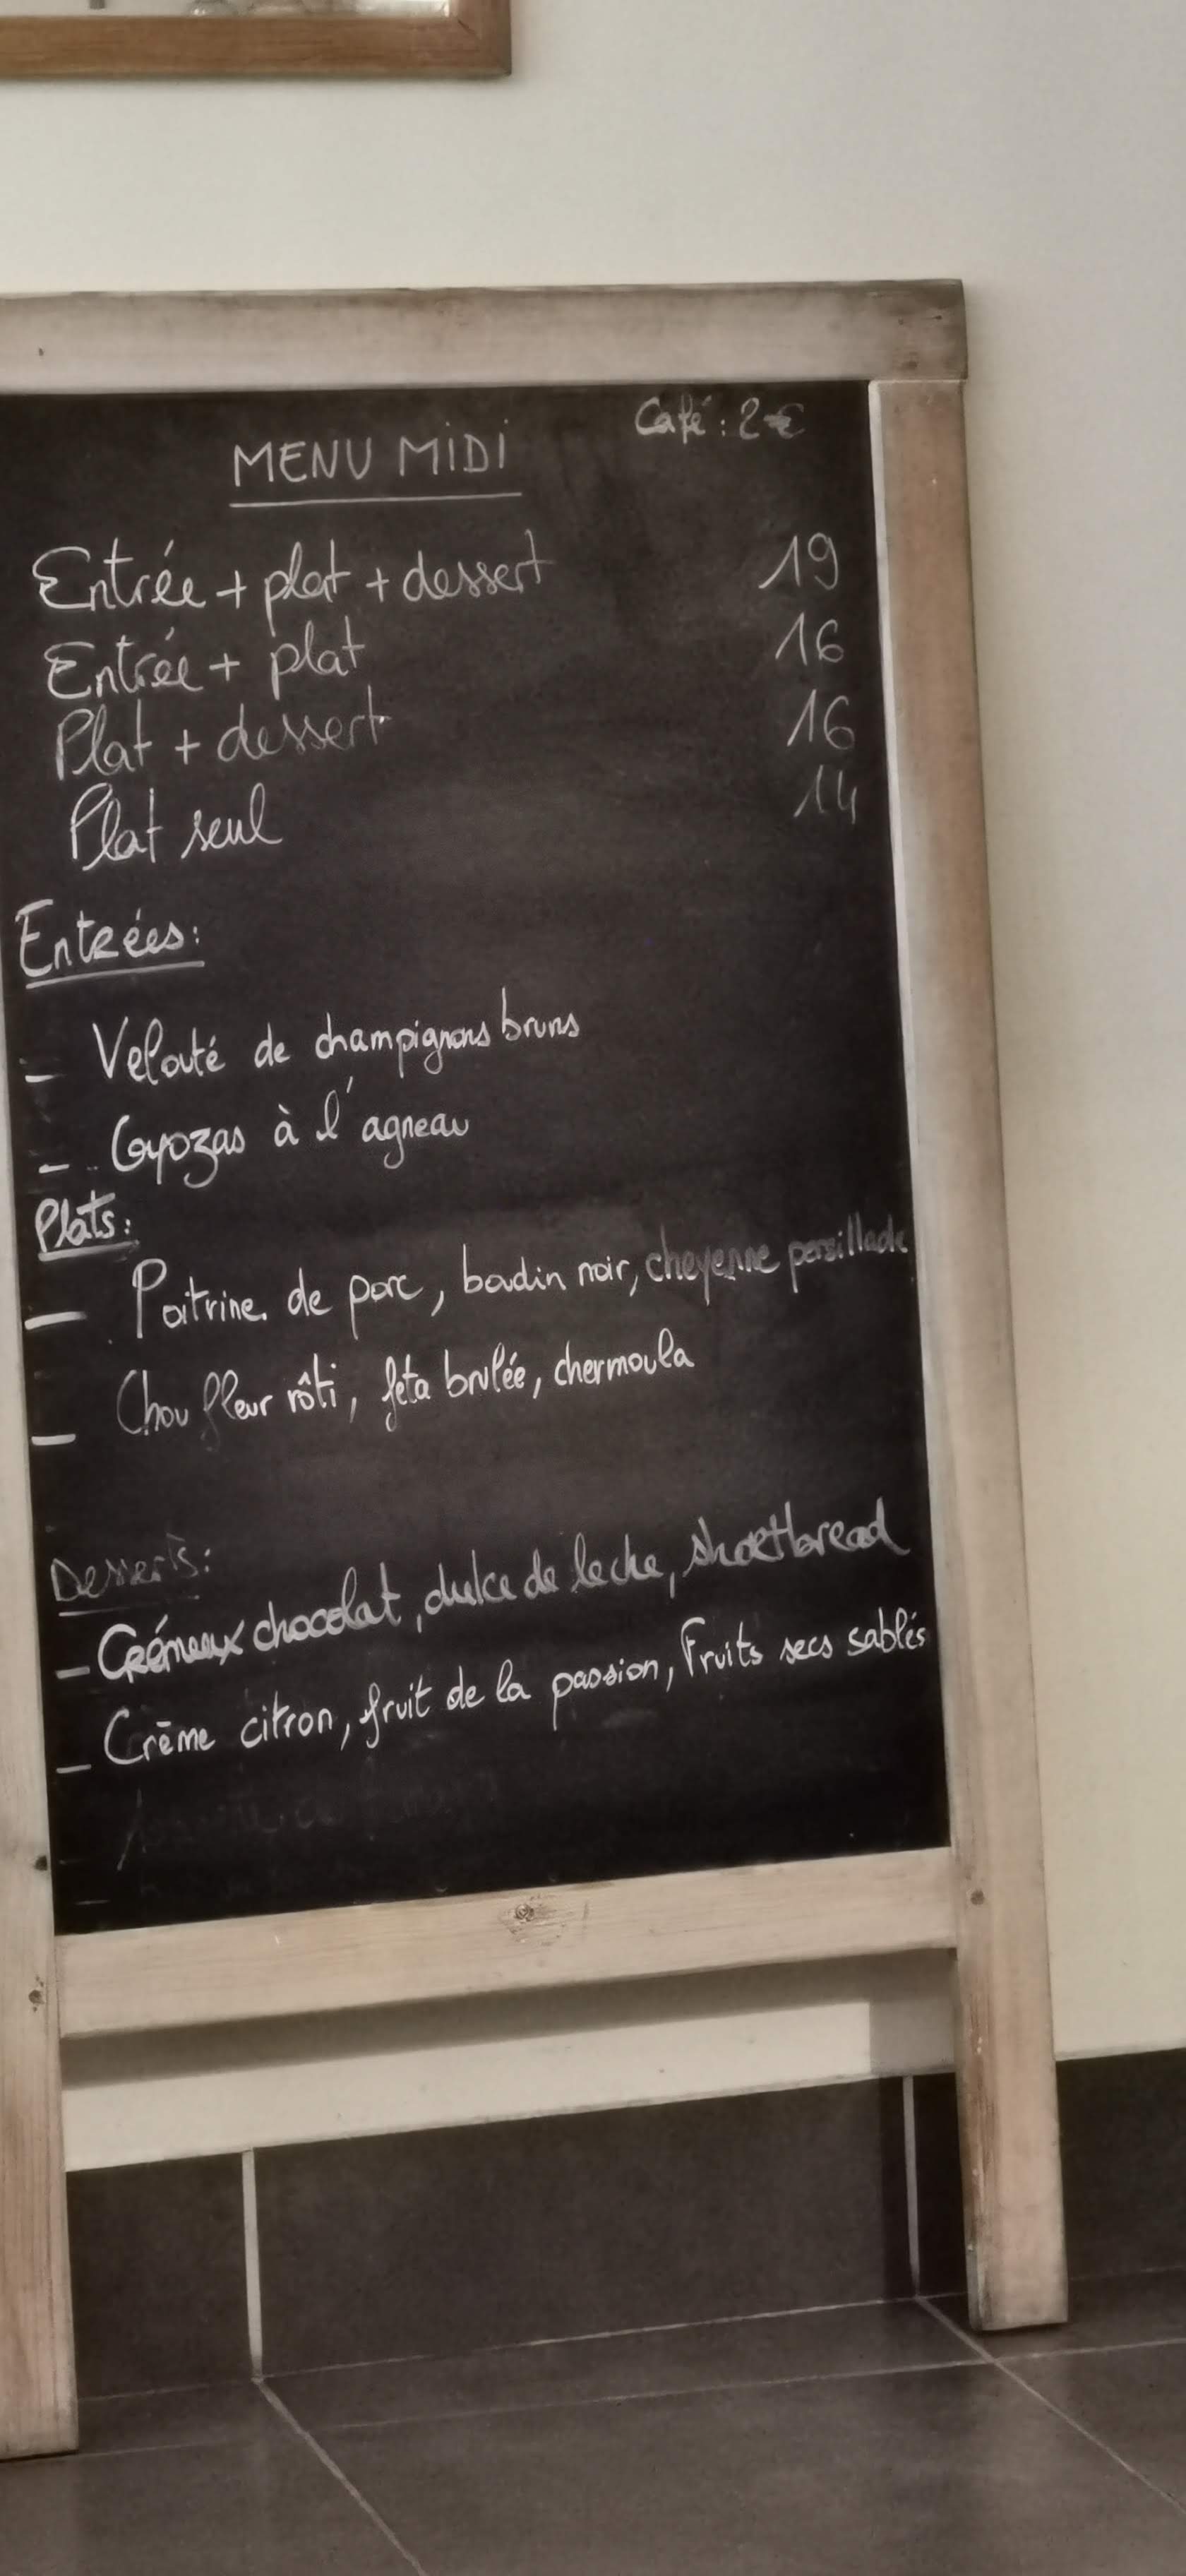 Café : 2€
MENU MIDI
Entrée + plat + dessert 19
Entrée + plat 16
Plat + dessert 16
Plat seul 14
Entrées:
- Velouté de champignons bruns
- Gyozas à l'agneau
Plats:
- Poitrine de porc, boudin noir, cheyenne persillade
- Chou fleur rôti, feta brulée, chermoula
Desserts:
- Crémeux chocolat, dulce de leche, shortbread
- Crème citron, fruit de la passion, Fruits secs sablés